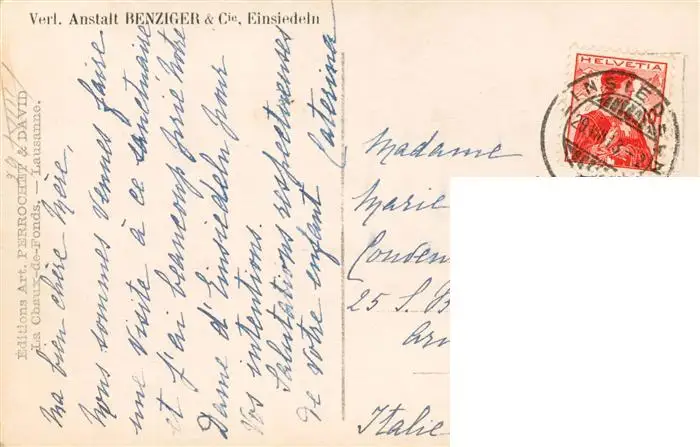 Verl. Anstalt BENZIGER & Cie, Einsiedeln
Éditions Art. PERROCHET & DAVID
La Chaux-de-Fonds. — Lausanne.
Ma bien chère Mère,
Nous sommes venues faire
une visite à ce sanctuaire
et j'ai beaucoup prié Notre
Dame d'Einsiedeln pour
Vos intentions.
Salutations respectueuses
de votre enfant Caterina
HELVETIA
Madame
Marie
25 S. B
Italie